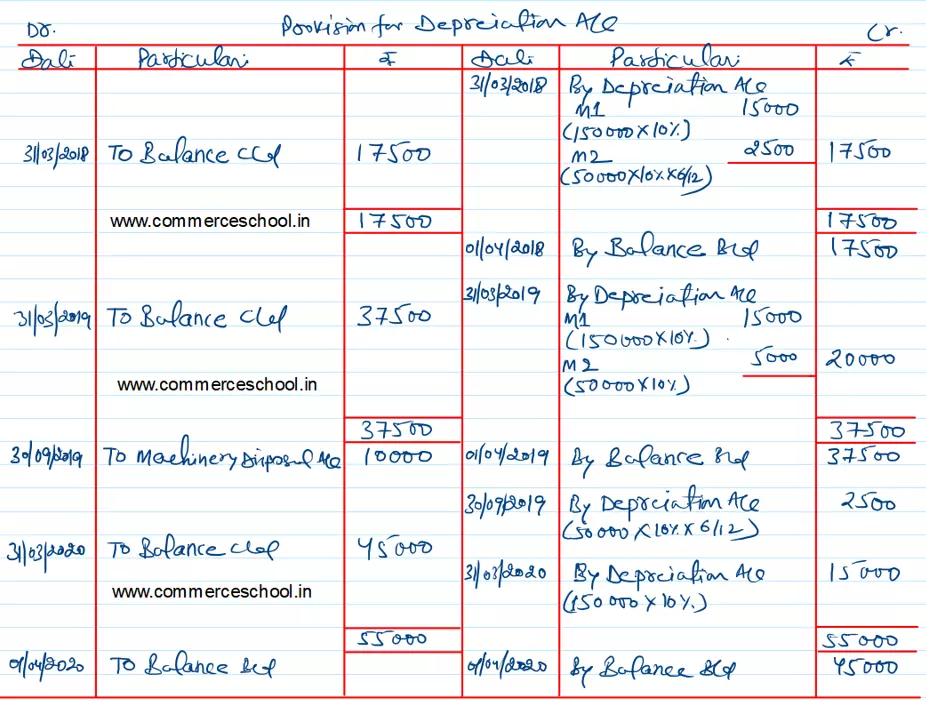 Provision for Depreciation A/c
Dr. Cr.
Date Particulars ₹ Date Particulars ₹
31/03/2018 By Depreciation A/c
M1 15000
(150000X10%)
31/03/2018 To Balance C/d 17500 M2 2500 17500
(50000X10%X6/12)
www.commerceschool.in 17500 17500
01/04/2018 By Balance B/d 17500
31/03/2019 By Depreciation A/c
31/03/2019 To Balance C/d 37500 M1 15000
(150000X10%)
M2 5000 20000
www.commerceschool.in (50000X10%)
37500 37500
30/09/2019 To Machinery Disposal A/c 10000 01/04/2019 By Balance B/d 37500
30/09/2019 By Depreciation A/c 2500
(50000X10%X6/12)
31/03/2020 To Balance C/d 45000
31/03/2020 By Depreciation A/c 15000
www.commerceschool.in (150000X10%)
55000 55000
01/04/2020 To Balance B/d 01/04/2020 By Balance B/d 45000